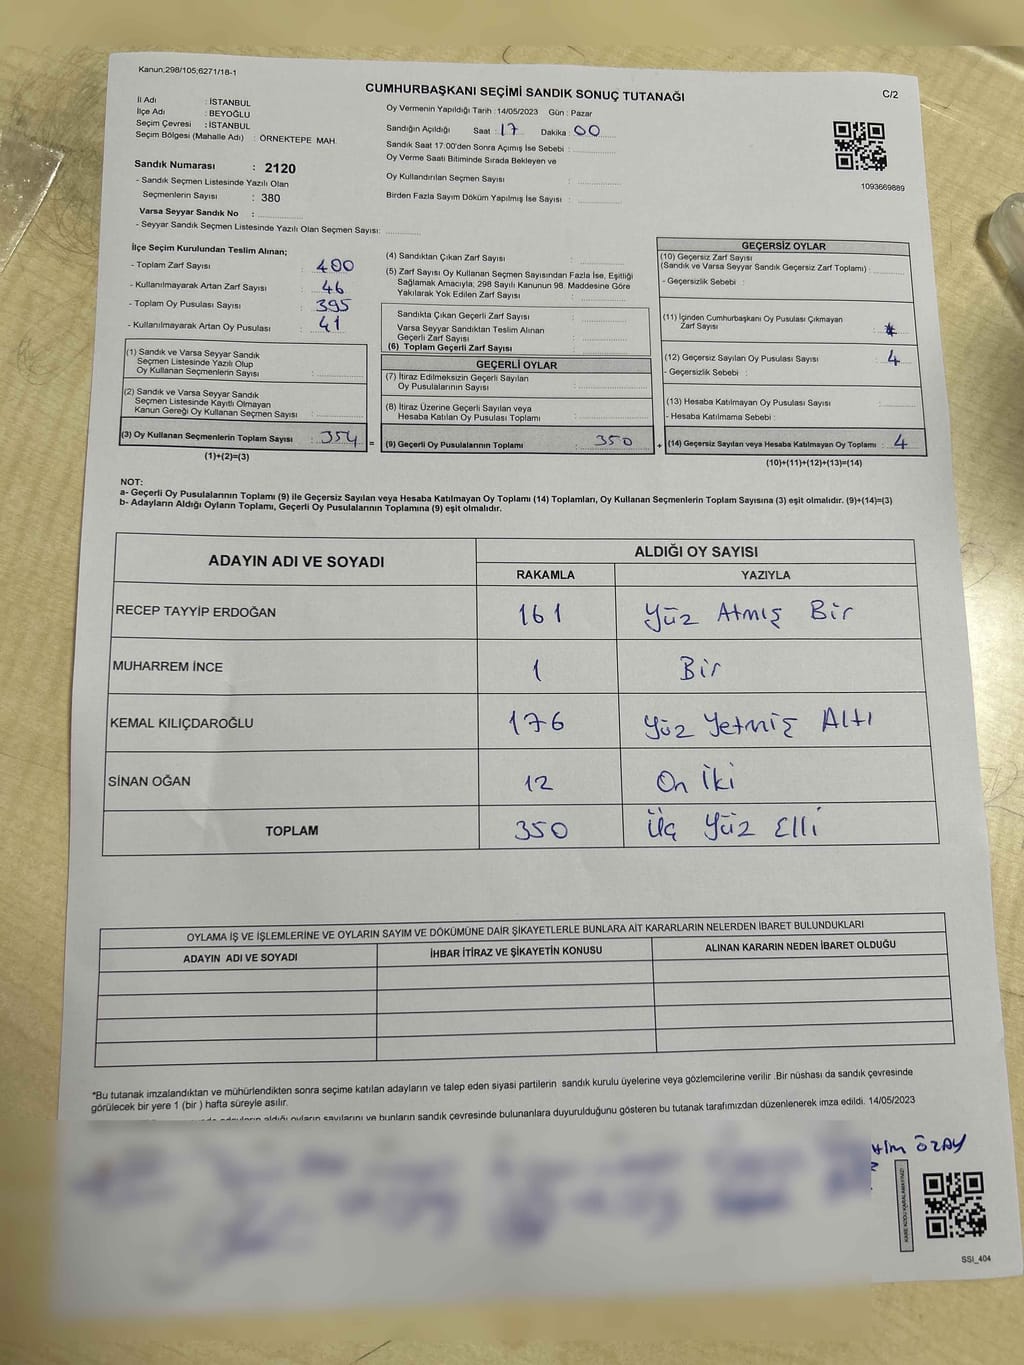 Kanun;298/105;6271/18-1
CUMHURBAŞKANI SEÇİMİ SANDIK SONUÇ TUTANAĞI
C/2
İl Adı : İSTANBUL
İlçe Adı : BEYOĞLU
Seçim Çevresi : İSTANBUL
Seçim Bölgesi (Mahalle Adı) : ÖRNEKTEPE MAH.
Sandık Numarası : 2120
- Sandık Seçmen Listesinde Yazılı Olan
Seçmenlerin Sayısı : 380
Varsa Seyyar Sandık No :
- Seyyar Sandık Seçmen Listesinde Yazılı Olan Seçmen Sayısı:
Oy Vermenin Yapıldığı Tarih : 14/05/2023 Gün : Pazar
Sandığın Açıldığı Saat : 17 Dakika : 00
Sandık Saat 17:00'den Sonra Açımış İse Sebebi :
Oy Verme Saati Bitiminde Sırada Bekleyen ve
Oy Kullandırılan Seçmen Sayısı :
Birden Fazla Sayım Döküm Yapılmış İse Sayısı :
1093669889
İlçe Seçim Kurulundan Teslim Alınan;
- Toplam Zarf Sayısı : 400
- Kullanılmayarak Artan Zarf Sayısı : 46
- Toplam Oy Pusulası Sayısı : 395
- Kullanılmayarak Artan Oy Pusulası : 41
(1) Sandık ve Varsa Seyyar Sandık
Seçmen Listesinde Yazılı Olup
Oy Kullanan Seçmenlerin Sayısı :
(2) Sandık ve Varsa Seyyar Sandık
Seçmen Listesinde Kayıtlı Olmayan
Kanun Gereği Oy Kullanan Seçmen Sayısı :
(3) Oy Kullanan Seçmenlerin Toplam Sayısı : 354 =
(1)+(2)=(3)
(4) Sandıktan Çıkan Zarf Sayısı :
(5) Zarf Sayısı Oy Kullanan Seçmen Sayısından Fazla İse, Eşitliği
Sağlamak Amacıyla, 298 Sayılı Kanunun 98. Maddesine Göre
Yakılarak Yok Edilen Zarf Sayısı :
Sandıkta Çıkan Geçerli Zarf Sayısı :
Varsa Seyyar Sandıktan Teslim Alınan
Geçerli Zarf Sayısı :
(6) Toplam Geçerli Zarf Sayısı :
GEÇERLİ OYLAR
(7) İtiraz Edilmeksizin Geçerli Sayılan
Oy Pusulalarının Sayısı :
(8) İtiraz Üzerine Geçerli Sayılan veya
Hesaba Katılan Oy Pusulası Toplamı :
(9) Geçerli Oy Pusulalarının Toplamı : 350 +
GEÇERSİZ OYLAR
(10) Geçersiz Zarf Sayısı
(Sandık ve Varsa Seyyar Sandık Geçersiz Zarf Toplamı) :
- Geçersizlik Sebebi :
(11) İçinden Cumhurbaşkanı Oy Pusulası Çıkmayan
Zarf Sayısı :
(12) Geçersiz Sayılan Oy Pusulası Sayısı : 4
- Geçersizlik Sebebi :
(13) Hesaba Katılmayan Oy Pusulası Sayısı :
- Hesaba Katılmama Sebebi :
(14) Geçersiz Sayılan veya Hesaba Katılmayan Oy Toplamı : 4
(10)+(11)+(12)+(13)=(14)
NOT:
a- Geçerli Oy Pusulalarının Toplamı (9) ile Geçersiz Sayılan veya Hesaba Katılmayan Oy Toplamı (14) Toplamları, Oy Kullanan Seçmenlerin Toplam Sayısına (3) eşit olmalıdır. (9)+(14)=(3)
b- Adayların Aldığı Oyların Toplamı, Geçerli Oy Pusulalarının Toplamına (9) eşit olmalıdır.
ADAYIN ADI VE SOYADI
ALDIĞI OY SAYISI
RAKAMLA YAZIYLA
RECEP TAYYİP ERDOĞAN 161 Yüz Atmış Bir
MUHARREM İNCE 1 Bir
KEMAL KILIÇDAROĞLU 176 Yüz Yetmiş Altı
SİNAN OĞAN 12 On İki
TOPLAM 350 Üç Yüz Elli
OYLAMA İŞ VE İŞLEMLERİNE VE OYLARIN SAYIM VE DÖKÜMÜNE DAİR ŞİKAYETLERLE BUNLARA AİT KARARLARIN NELERDEN İBARET BULUNDUKLARI
ADAYIN ADI VE SOYADI İHBAR İTİRAZ VE ŞİKAYETİN KONUSU ALINAN KARARIN NEDEN İBARET OLDUĞU
*Bu tutanak imzalandıktan ve mühürlendikten sonra seçime katılan adayların ve talep eden siyasi partilerin sandık kurulu üyelerine veya gözlemcilerine verilir .Bir nüshası da sandık çevresinde
görülecek bir yere 1 (bir ) hafta süreyle asılır.
aldığı oyların sayılarını ve bunların sandık çevresinde bulunanlara duyurulduğunu gösteren bu tutanak tarafımızdan düzenlenerek imza edildi. 14/05/2023
ÖZAY
KARE KODU KARALAMAYINIZ!
SSI_404